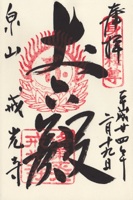 奉拝
平成廿四年
二月十九日
丈六殿
泉山
戒光寺